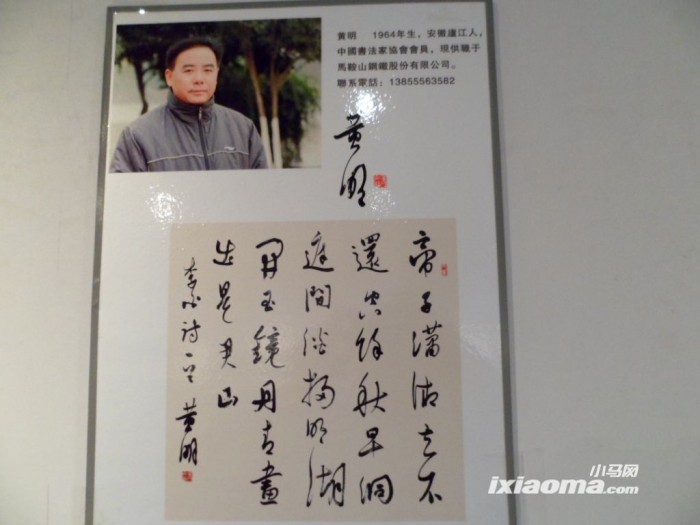 黄明 1964年生，安徽廬江人，
中國書法家協會會員，現供職于
馬鞍山鋼鐵股份有限公司。
聯系電話：13855563582
黄明
帝子瀟湘去不
還空餘秋草洞
庭間淡掃明湖
開玉鏡丹青畫
出是君山
李白詩一首 黄明
小马网
ixiaoma.com